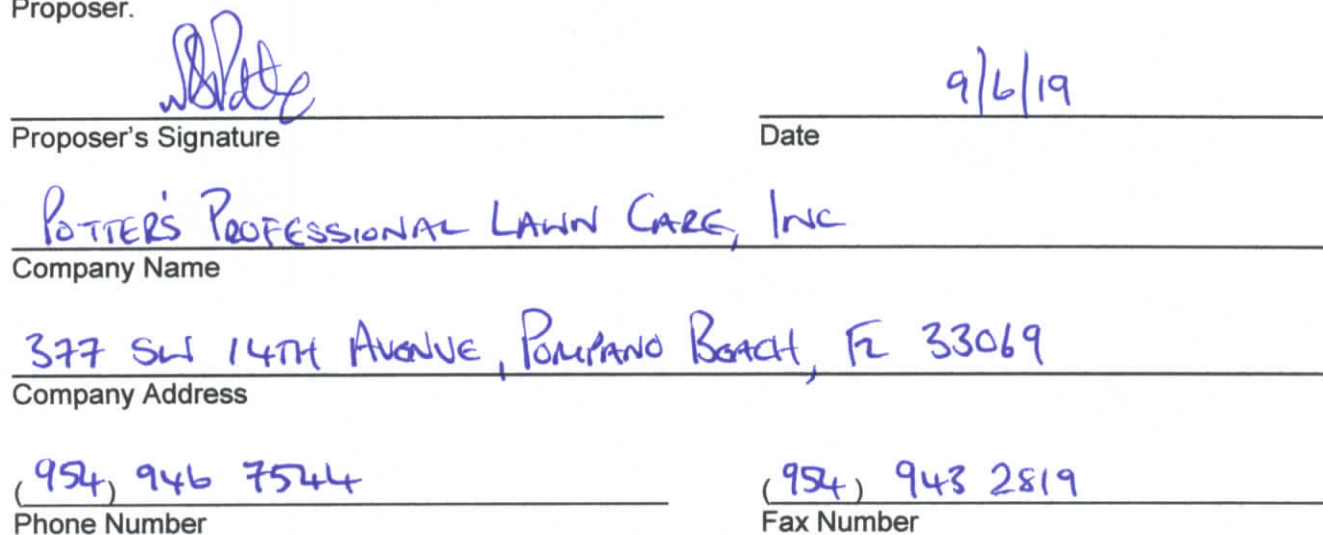 Proposer.
9/6/19
Proposer's Signature Date
POTTER'S PROFESSIONAL LAWN CARE, INC
Company Name
377 SW 14TH AVENUE, POMPANO BEACH, FL 33069
Company Address
(954) 946 7544 (954) 943 2819
Phone Number Fax Number